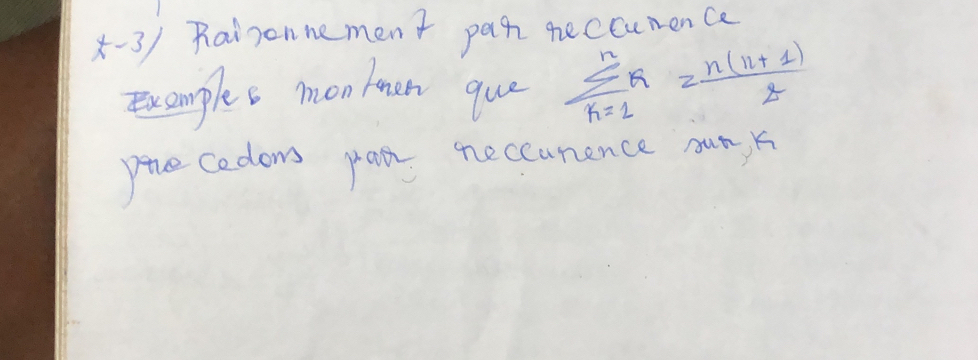 2-3) Raisonnement par reccurence
Exemples montrer que \sum_{k=1}^{n} k = \frac{n(n+1)}{2}
procedons par reccurence sur k